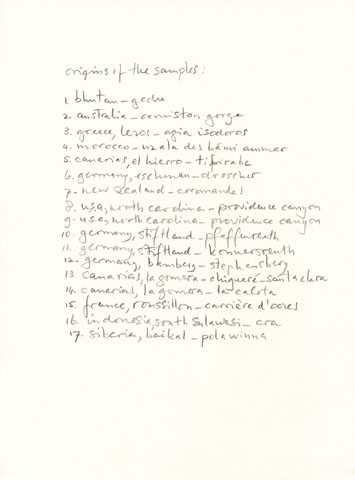 origins of the samples:
1. bhutan – gedu
2. australia – ormiston gorge
3. greece, leros – agia isodoros
4. morocco – nzala des béni ammar
5. canarias, el hierro – tifirabe
6. germany, eschman – drescher
7. new zealand – coromandel
8. u.s.a., north carolina – providence canyon
9. u.s.a., north carolina – providence canyon
10. germany, stiftland – pfaffenreuth
11. germany, stiftland – konnersreuth
12. germany, bamberg – stephansberg
13. canarias, la gomera – chigueré – santa clara
14. canarias, la gomera – la calota
15. france, roussillon – carrière d'ocres
16. indonesia, south sulawesi – cra
17. siberia, baikal – polawinna